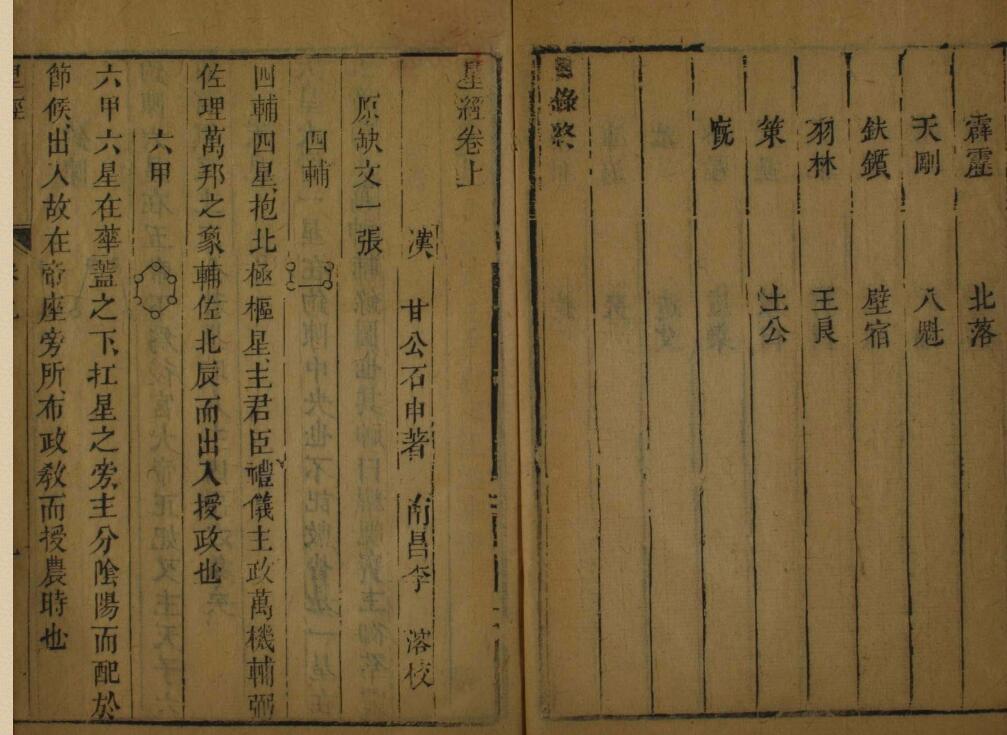 霹靂　北落
天剛　八魁
鈇鑕　壁宿
羽林　王良
策　土公
厩
目錄終
星經卷上
漢　甘公石申著　南昌李　溶校
原缺文一張
四輔
四輔四星、抱北極樞星、主君臣禮儀主政萬機輔弼
佐理萬邦之象輔佐北辰而出入授政也
六甲
六甲六星在華蓋之下、扛星之旁、主分陰陽而配於
節候、出入故在帝座旁所、布政敎而授農時也
星經